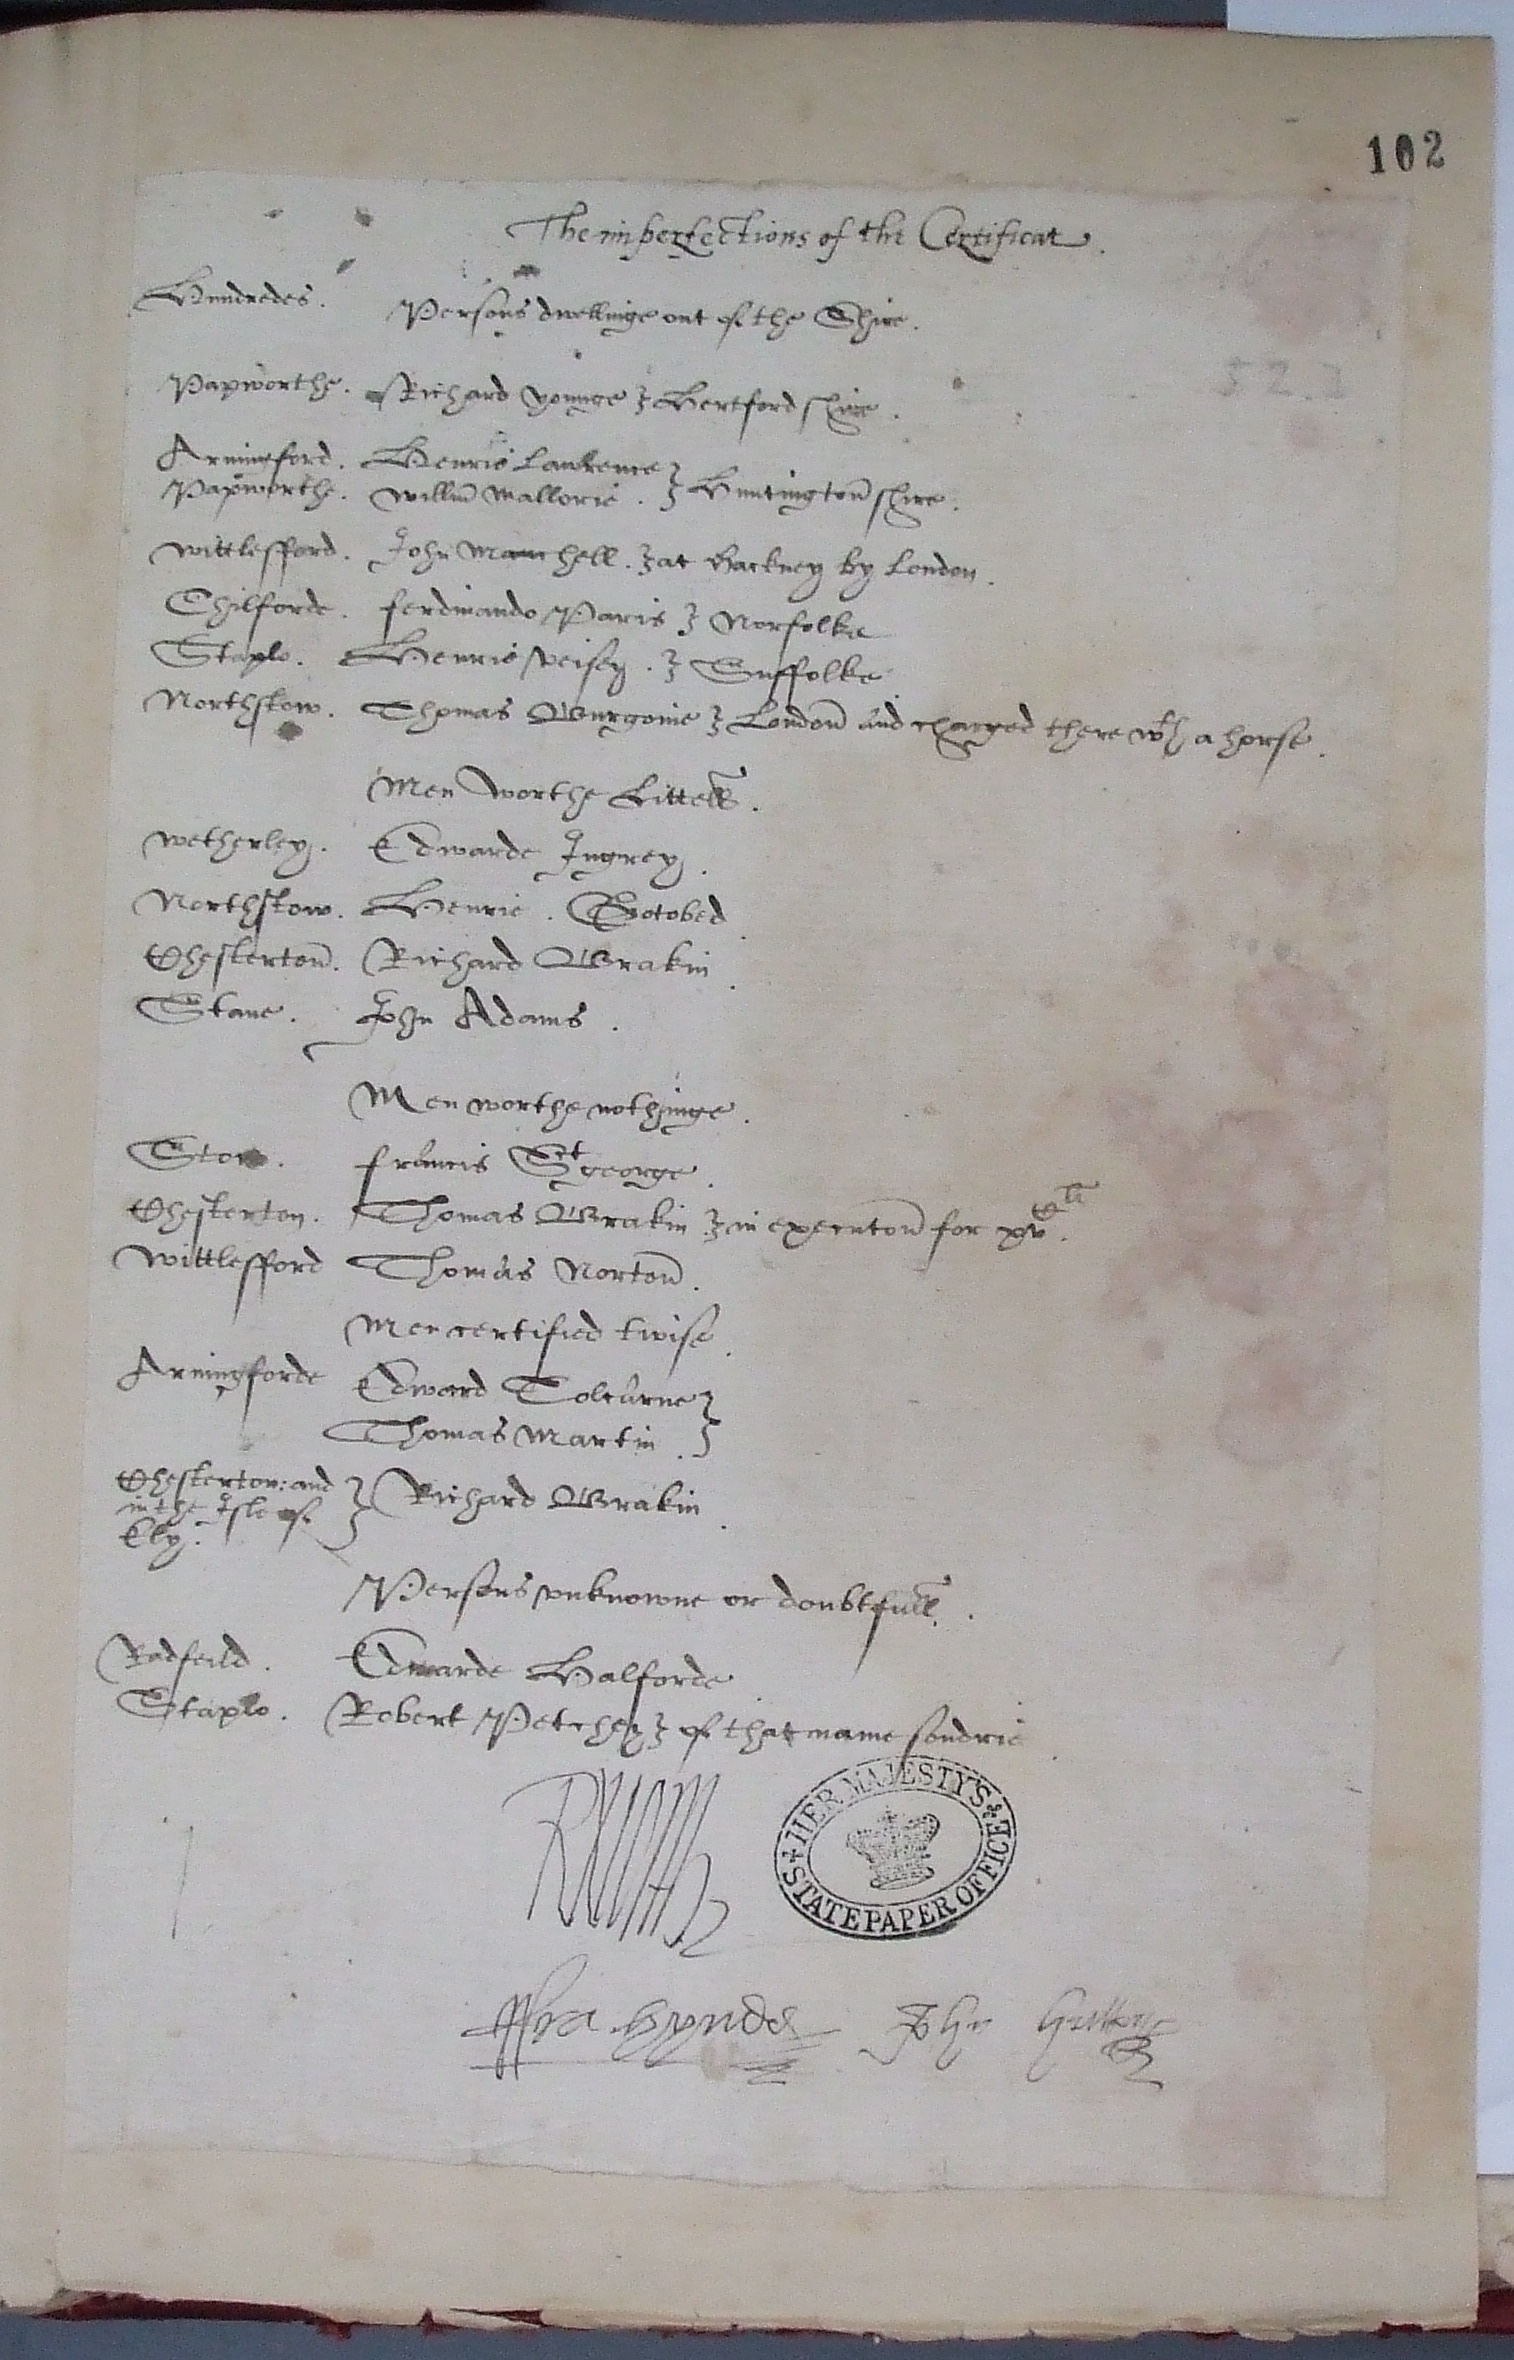 102
The imperfections of the Certificat.
Hundredes. Persons dwellinge out of the Shire.
52.1
Papworthe. Richard Younge } Hertford shire.
Armingford. Henrie Lawrence }
Papworthe. Willm̄ Mallorie. } Huntingtoñ shire.
Wittlesfford. John Manchell. } at Hackney by London.
Chilforde. ferdinando Paris } Norfolke
Staplo. Henrie Veisey. } Suffolke
Northstow. Thomas Burgoine } Londoñ and charged there wth a horse.
Men worthe Littell.
Wetherley. Edwarde Ingrey.
Northstow. Henrie. Gotobed.
Chestertoñ. Richard Brakin.
Stane. John Adams.
Men worthe nothinge.
Stow. francis St george.
Chesterton. Thomas Brakin } in executoñ for
Wittlesfford Thomas Nortoñ.
Men certified twise.
Armingforde Edward Tolcarne }
Thomas Martin. }
Chesterton: and
in the Isle of } Richard Brakin.
Ely.
Persons unknowne or doubtfull.
Radfeild. Edwarde Halforde.
Staplo. Robert Petchey } of that name sondrie.
HER MAJESTY'S STATE PAPER OFFICE
ffra Hynde John